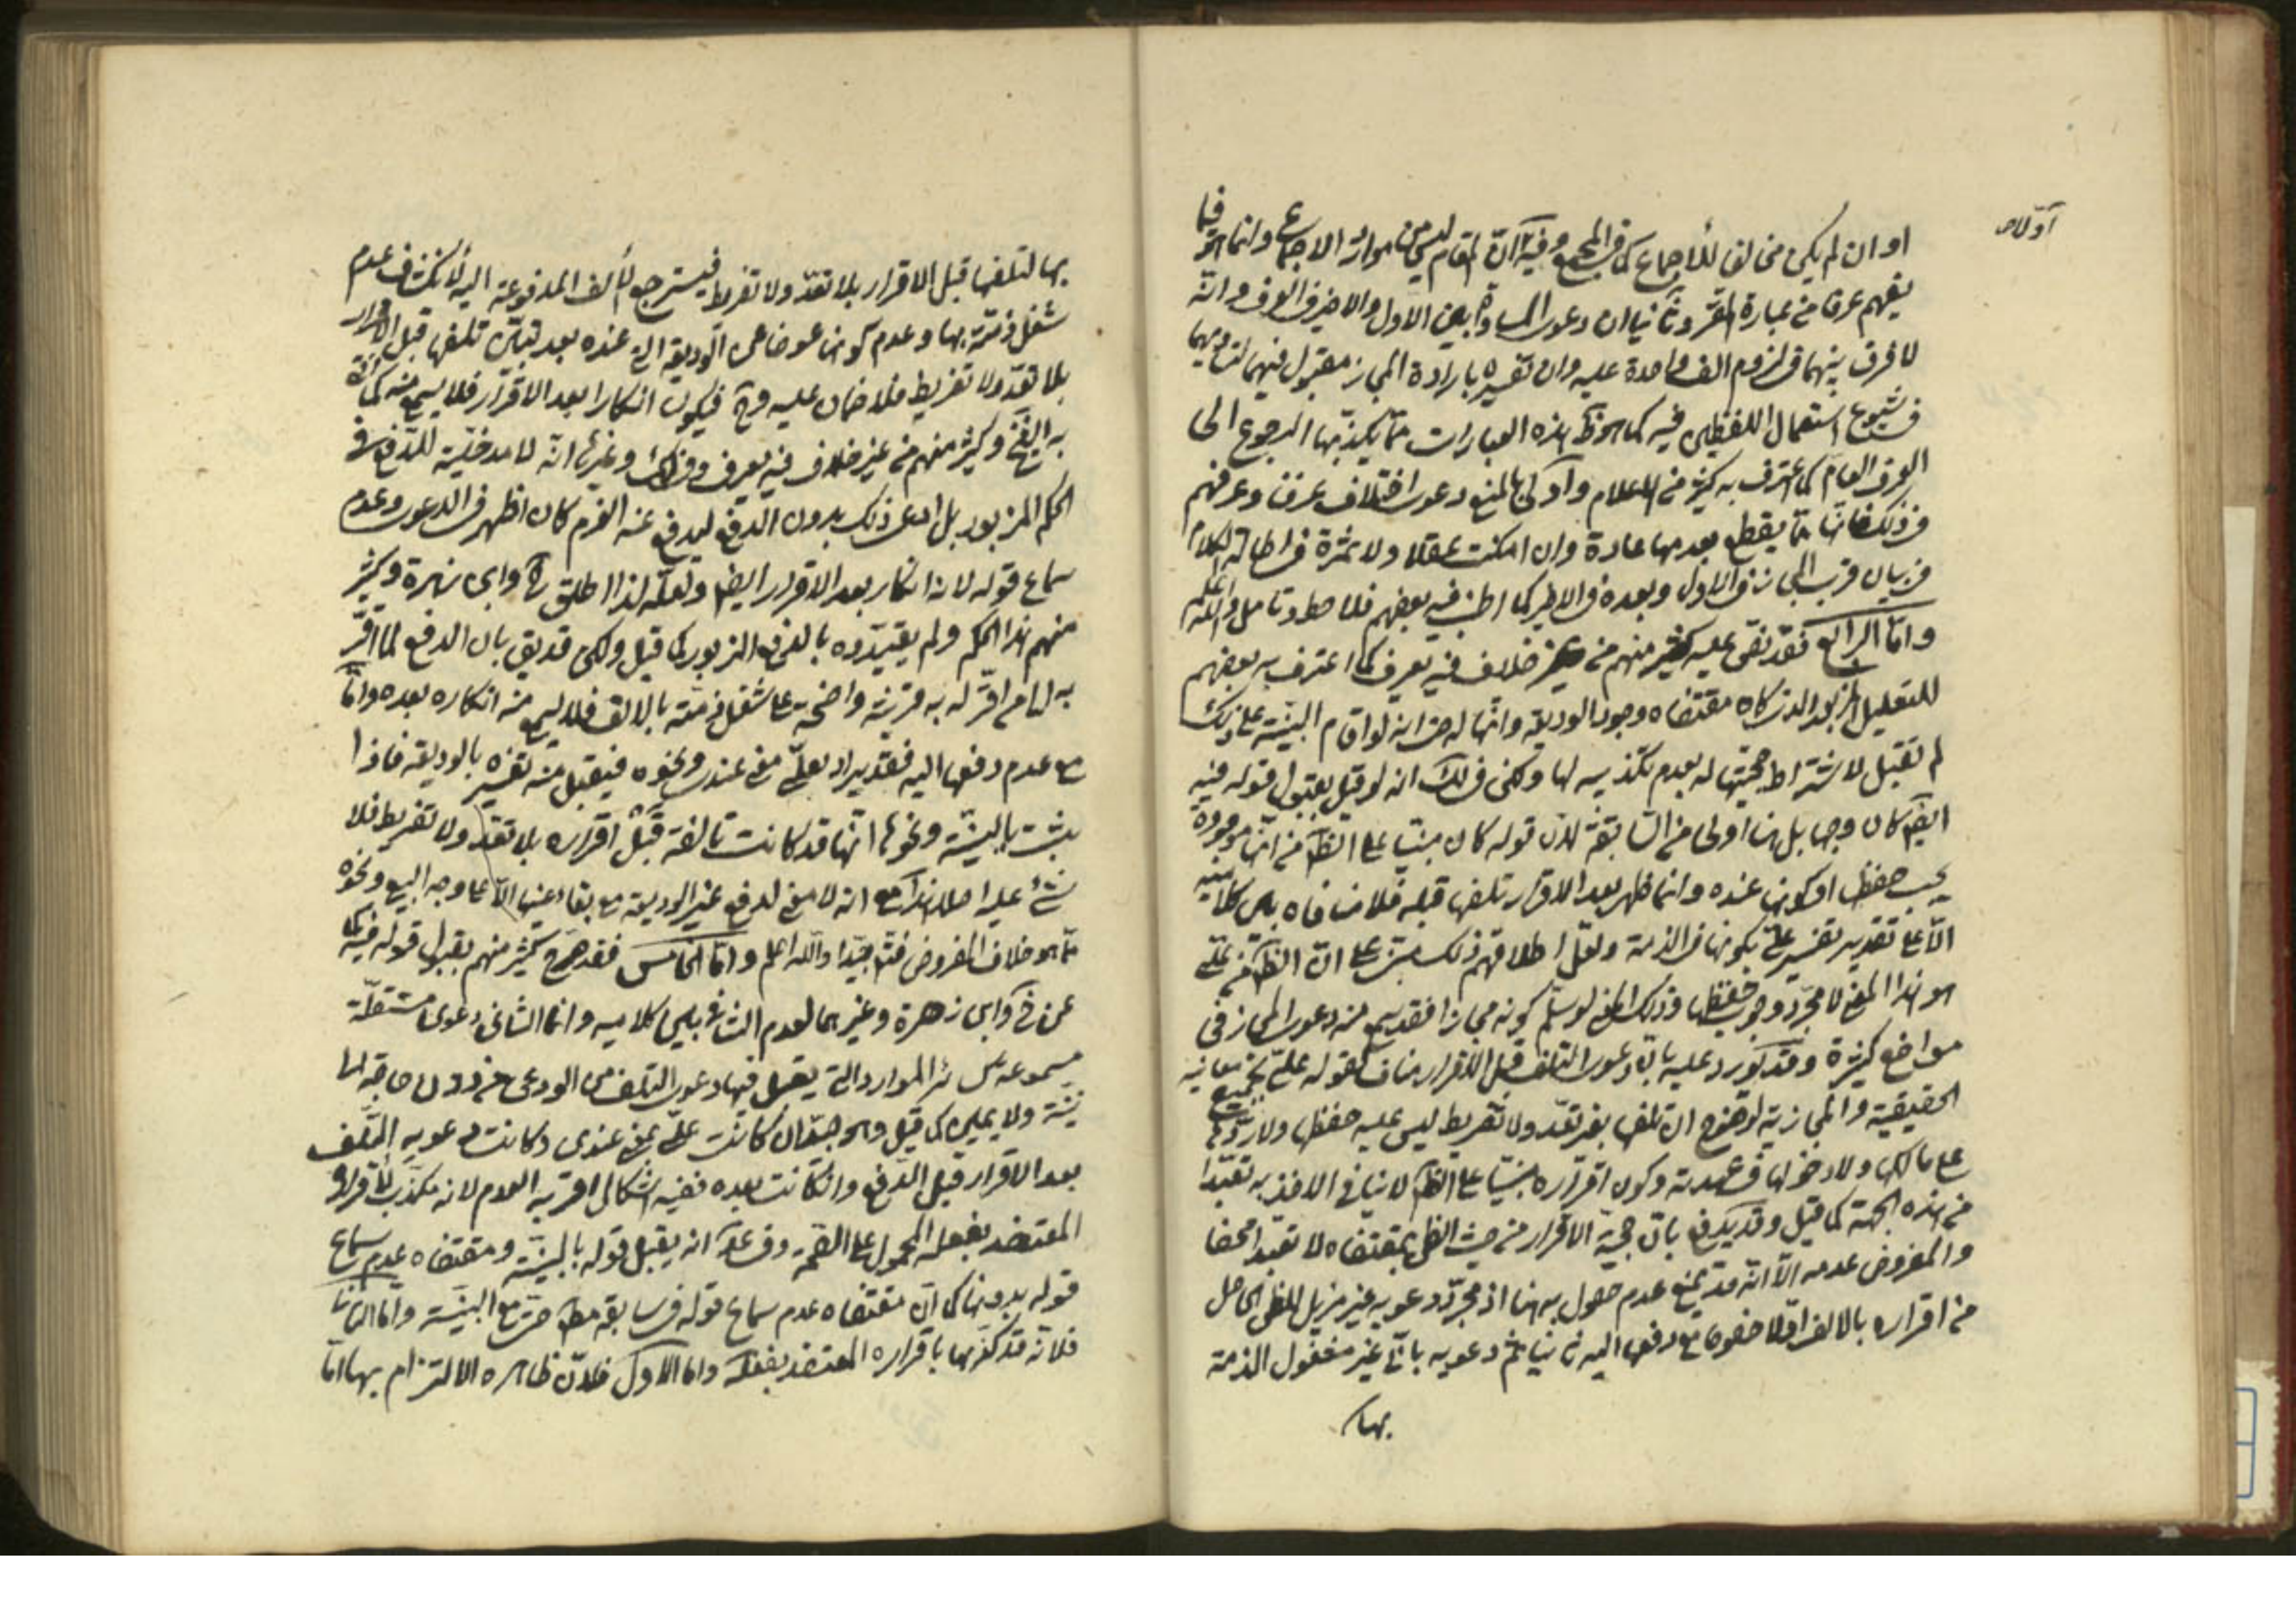 اولاه
او ان لم يكن مخالفا للاجماع كما في المجمع وفيه ان المقام ليس من موارد الاجماع وانما هو فيما
يفهم عرفا من عبارة المقر وثانيا ان دعوى المساواة بين الاول والاخير في العرف وانه
لا فرق بينهما في لزوم الف واحدة عليه وان تفسيره بارادة المجاز مقبول فيهما
شيوع استعمال اللفظين فيه كما هو ظ هذه العبارات مما يكذبها الرجوع الى
العرف العام كما اعترف به كثير من الاعلام واولى بالمنع دعوى اختلاف عرفنا وعرفهم
في ذلك فانها مما يقطع بعدمها عادة وان امكنت عقلا ولا ثمرة في اطالة الكلام
في بيان قرب المجاز في الاول وبعده في الاخير كما اطنب فيه بعضهم فلاحظ وتامل والله اعلم
واما الرابع فقد نص عليه كثير منهم من غير خلاف فيه يعرف كما اعترف به بعضهم
للتعليل المزبور الذي كان مقتضاه وجود الوديعة وانها له حتى انه لو اقام البينة على ذلك
لم تقبل لاشتراط حجيتها له بعدم تكذيبه لها ولكن في لك انه لو قيل بقبول قوله فيه
ايضا كان وجها بل هنا اولى من السابقة لان قوله كان مبنيا على الظ من انها موجودة
يجب حفظها او كونها عنده وانما ظهر بعد الاقرار تلفها قبله فلا منافاه بين كلاميه
الا على تقدير تفسير علي بكونها في الذمة ولعل اطلاقهم ذلك مبني على ان الظ من علي
هو هذا المعنى لا مجرد وجوب حفظها وذلك لو سلم كونه مجازا فقد يسمع منه دعوى المجاز في
مواضع كثيرة وقد يورد عليه بان دعوى التلف قبل الاقرار مناف لقوله علي بجميع معانيه
الحقيقية والمجازية لوضوح ان تلفها بغير تعد ولا تفريط ليس عليه حفظها ولا ردها
على مالكها ولا دخولها في عهدته وكون اقراره مبنيا على الظ لا ينافي الاخذ به تعبدا
من هذه الجهة كما قيل وقد يدفع بان حجية الاقرار من حيث الظن بمقتضاه لا تعبدا محضا
والمفروض عدمه الا انه قد يمنع عدم حصوله هنا اذ مجرد دعويه غير مزيل للظن الحاصل
من اقراره بالالف اولا خصوصا مع دفعها اليه ثانيا ثم دعويه بانه غير مشغول الذمة
بها
بها لتلفها قبل الاقرار بلا تعد ولا تفريط فيسترجع الالف المدفوعة اليه لانكشاف عدم
شغل ذمته بها وعدم كونها عوضا عن الوديعة التي عنده بعد تبين تلفها قبل الاقرار
بلا تعد ولا تفريط فلا ضمان عليه وح فيكون انكارا بعد الاقرار فلا يسمع منه كما
به الشيخ وكثير منهم من غير خلاف فيه يعرف وفي لك وغيرها انه لا مدخلية للدفع في
الحكم المزبور بل لو ادعى ذلك بدون الدفع ليدفع عنه الغرم كان اظهر في الدعوى وعدم
سماع قوله لانه انكار بعد الاقرار ايضا ولعله لذا اطلق خ وابن زهرة وكثير
منهم هذا الحكم ولم يقيدوه بالفرع المزبور كما قيل ولكن قد يق بان الدفع لما اقر
به لمن اقر له به قرينة واضحة على شغل ذمته بالالف فلا يسمع منه انكاره بعده واما
مع عدم دفعها اليه فقد يراد بعلي معنى عندي ونحوه فيقبل منه تفسيره بالوديعة فاذا
يثبت بالبينة ونحوها انها قد كانت تالفة قبل اقراره بلا تعد ولا تفريط فلا
شئ عليه اصلا هذا مع انه لا معنى لدفع غير الوديعة مع بقاء عينها الا على وجه البيع ونحوه
مما هو خلاف المفروض فتد جيدا والله اعلم واما الخامس فقد صرح كثير منهم بقبول قوله فيه كما
عن خ وابن زهرة وغيرهما لعدم التنافي بين كلاميه وانما الثاني دعوى مستقلة
مسموعة كسائر الموارد التي يقبل فيها دعوى التلف من الودعي من دون حاجة الى
بينة ولا يمين كما قيل وهو جيد ان كانت علي بمعنى عندي وكانت دعويه التلف
بعد الاقرار قبل الدفع وان كانت بعده ففيه اشكال اقربه العدم لانه مكذب لاقراره
المعتضد بفعله المحمول على الصحة وفي عد انه يقبل قوله بالبينة ومقتضاه عدم سماع
قوله بدونها كما ان مقتضاه عدم سماع قوله في سابقه مط حتى مع البينة واما الثاني
فلانه قد كذبها باقراره المعتضد بفعله واما الاول فلان ظاهره الالتزام بها اما